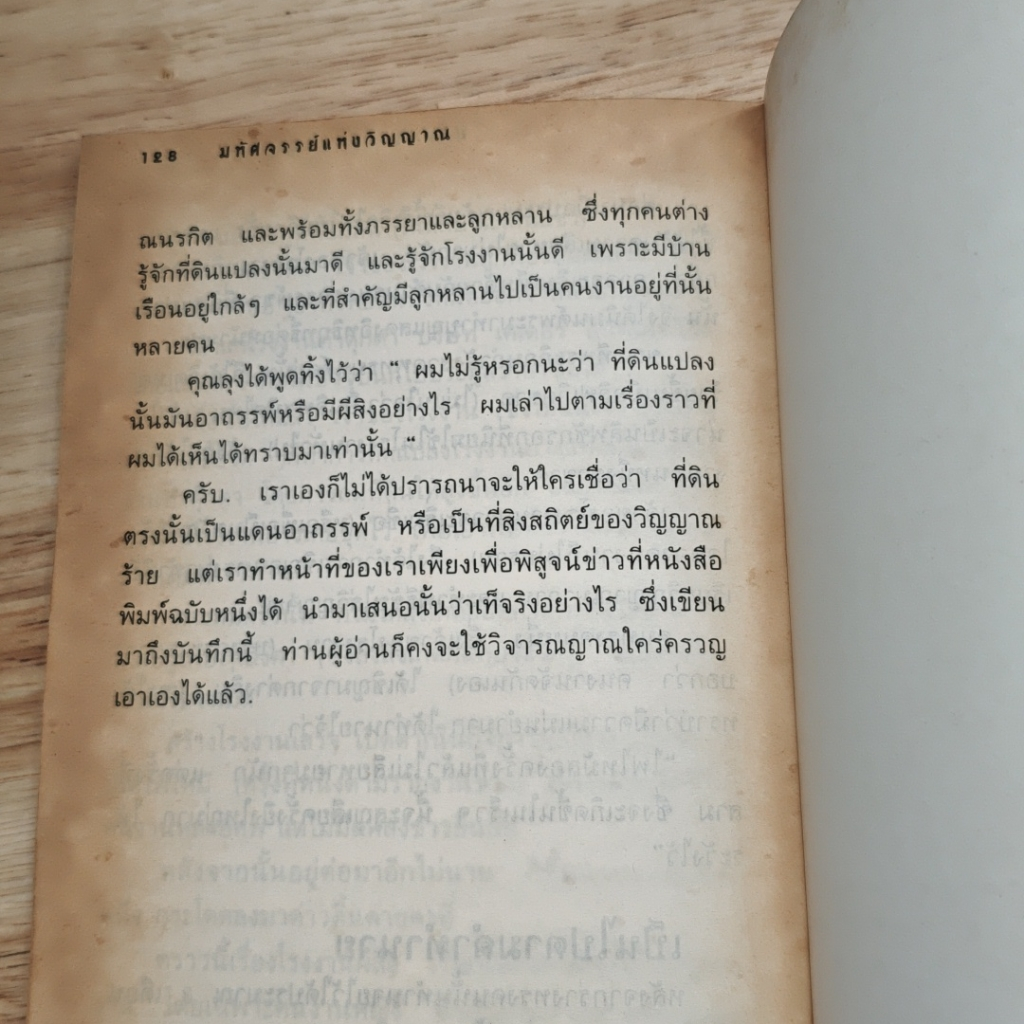 128 มหัศจรรย์แห่งวิญญาณ
ณนรกิต และพร้อมทั้งภรรยาและลูกหลาน ซึ่งทุกคนต่าง
รู้จักที่ดินแปลงนั้นมาดี และรู้จักโรงงานนั้นดี เพราะมีบ้าน
เรือนอยู่ใกล้ๆ และที่สำคัญมีลูกหลานไปเป็นคนงานอยู่ที่นั้น
หลายคน
คุณลุงได้พูดทิ้งไว้ว่า “ ผมไม่รู้หรอกนะว่า ที่ดินแปลง
นั้นมันอาถรรพ์หรือมีผีสิงอย่างไร ผมเล่าไปตามเรื่องราวที่
ผมได้เห็นได้ทราบมาเท่านั้น “
ครับ. เราเองก็ไม่ได้ปรารถนาจะให้ใครเชื่อว่า ที่ดิน
ตรงนั้นเป็นแดนอาถรรพ์ หรือเป็นที่สิงสถิตย์ของวิญญาณ
ร้าย แต่เราทำหน้าที่ของเราเพียงเพื่อพิสูจน์ข่าวที่หนังสือ
พิมพ์ฉบับหนึ่งได้ นำมาเสนอนั้นว่าเท็จจริงอย่างไร ซึ่งเขียน
มาถึงบันทึกนี้ ท่านผู้อ่านก็คงจะใช้วิจารณญาณใคร่ครวญ
เอาเองได้แล้ว.